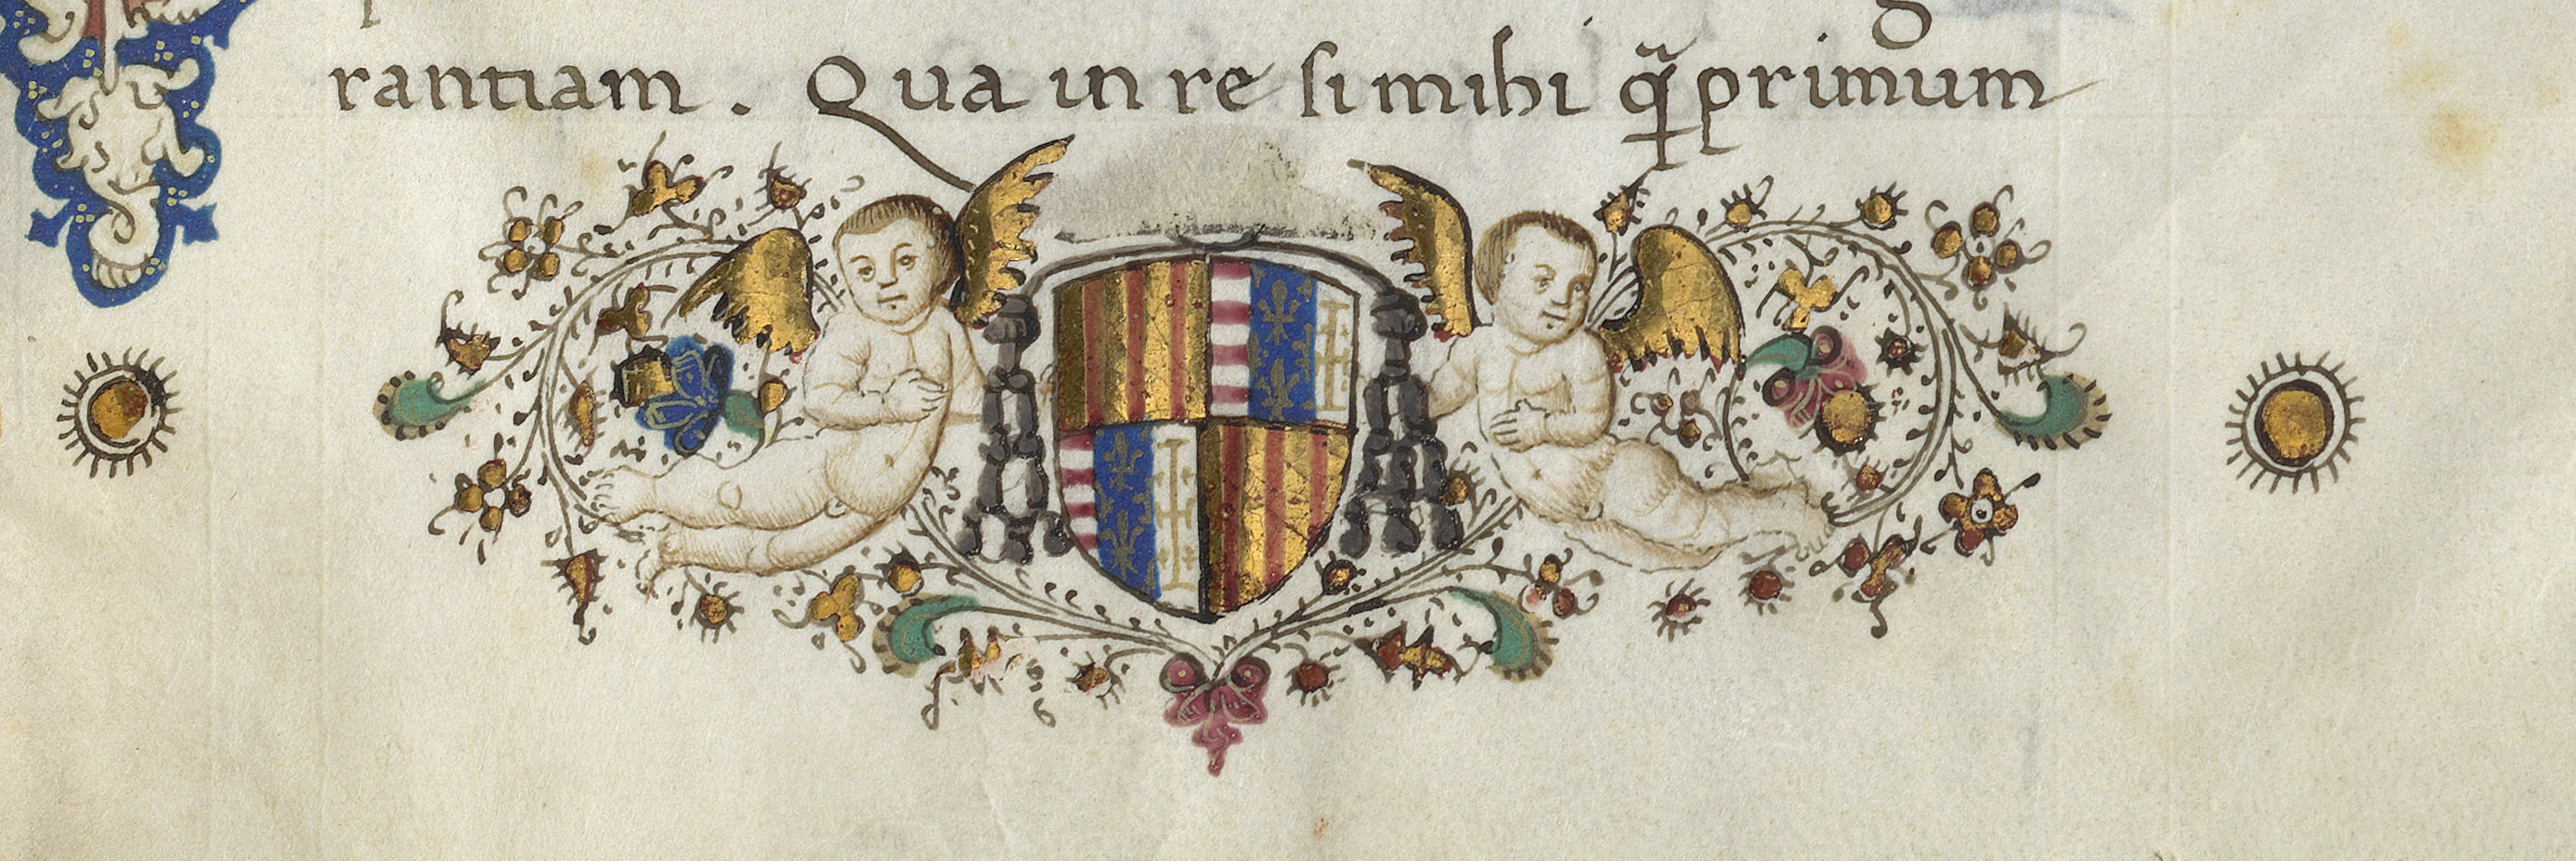 rantiam. Qua in re si mihi q̃ primum